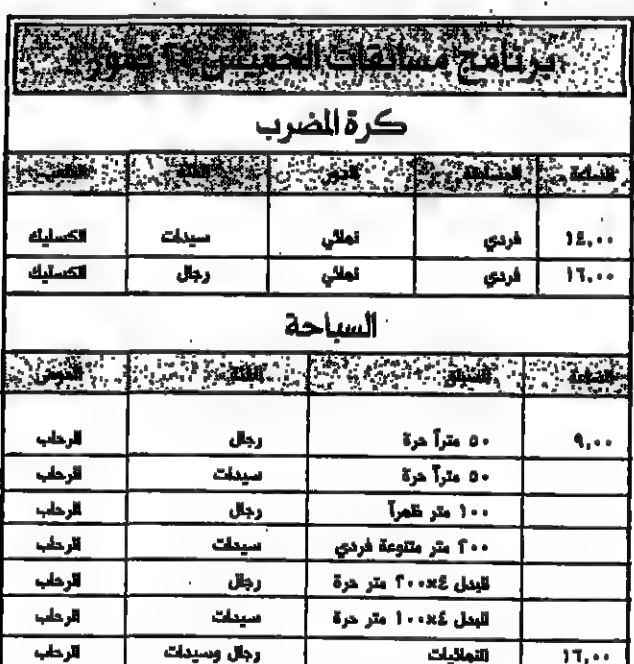 برنامج مسابقات الخميس تموز
كرة المضرب
الساعة المسابقة الدور الفئة
١٤,٠٠ فردي نهائي سيدات الكسليك
١٦,٠٠ فردي نهائي رجال الكسليك
السباحة
الساعة السباق الفئة الحوض
٩,٠٠ ٥٠ متراً حرة رجال الرحاب
٥٠ متراً حرة سيدات الرحاب
١٠٠ متر ظهراً رجال الرحاب
٢٠٠ متر متنوعة فردي سيدات الرحاب
البدل ٤×٢٠٠ متر حرة رجال الرحاب
البدل ٤×١٠٠ متر حرة سيدات الرحاب
١٦,٠٠ النهائيات رجال وسيدات الرحاب